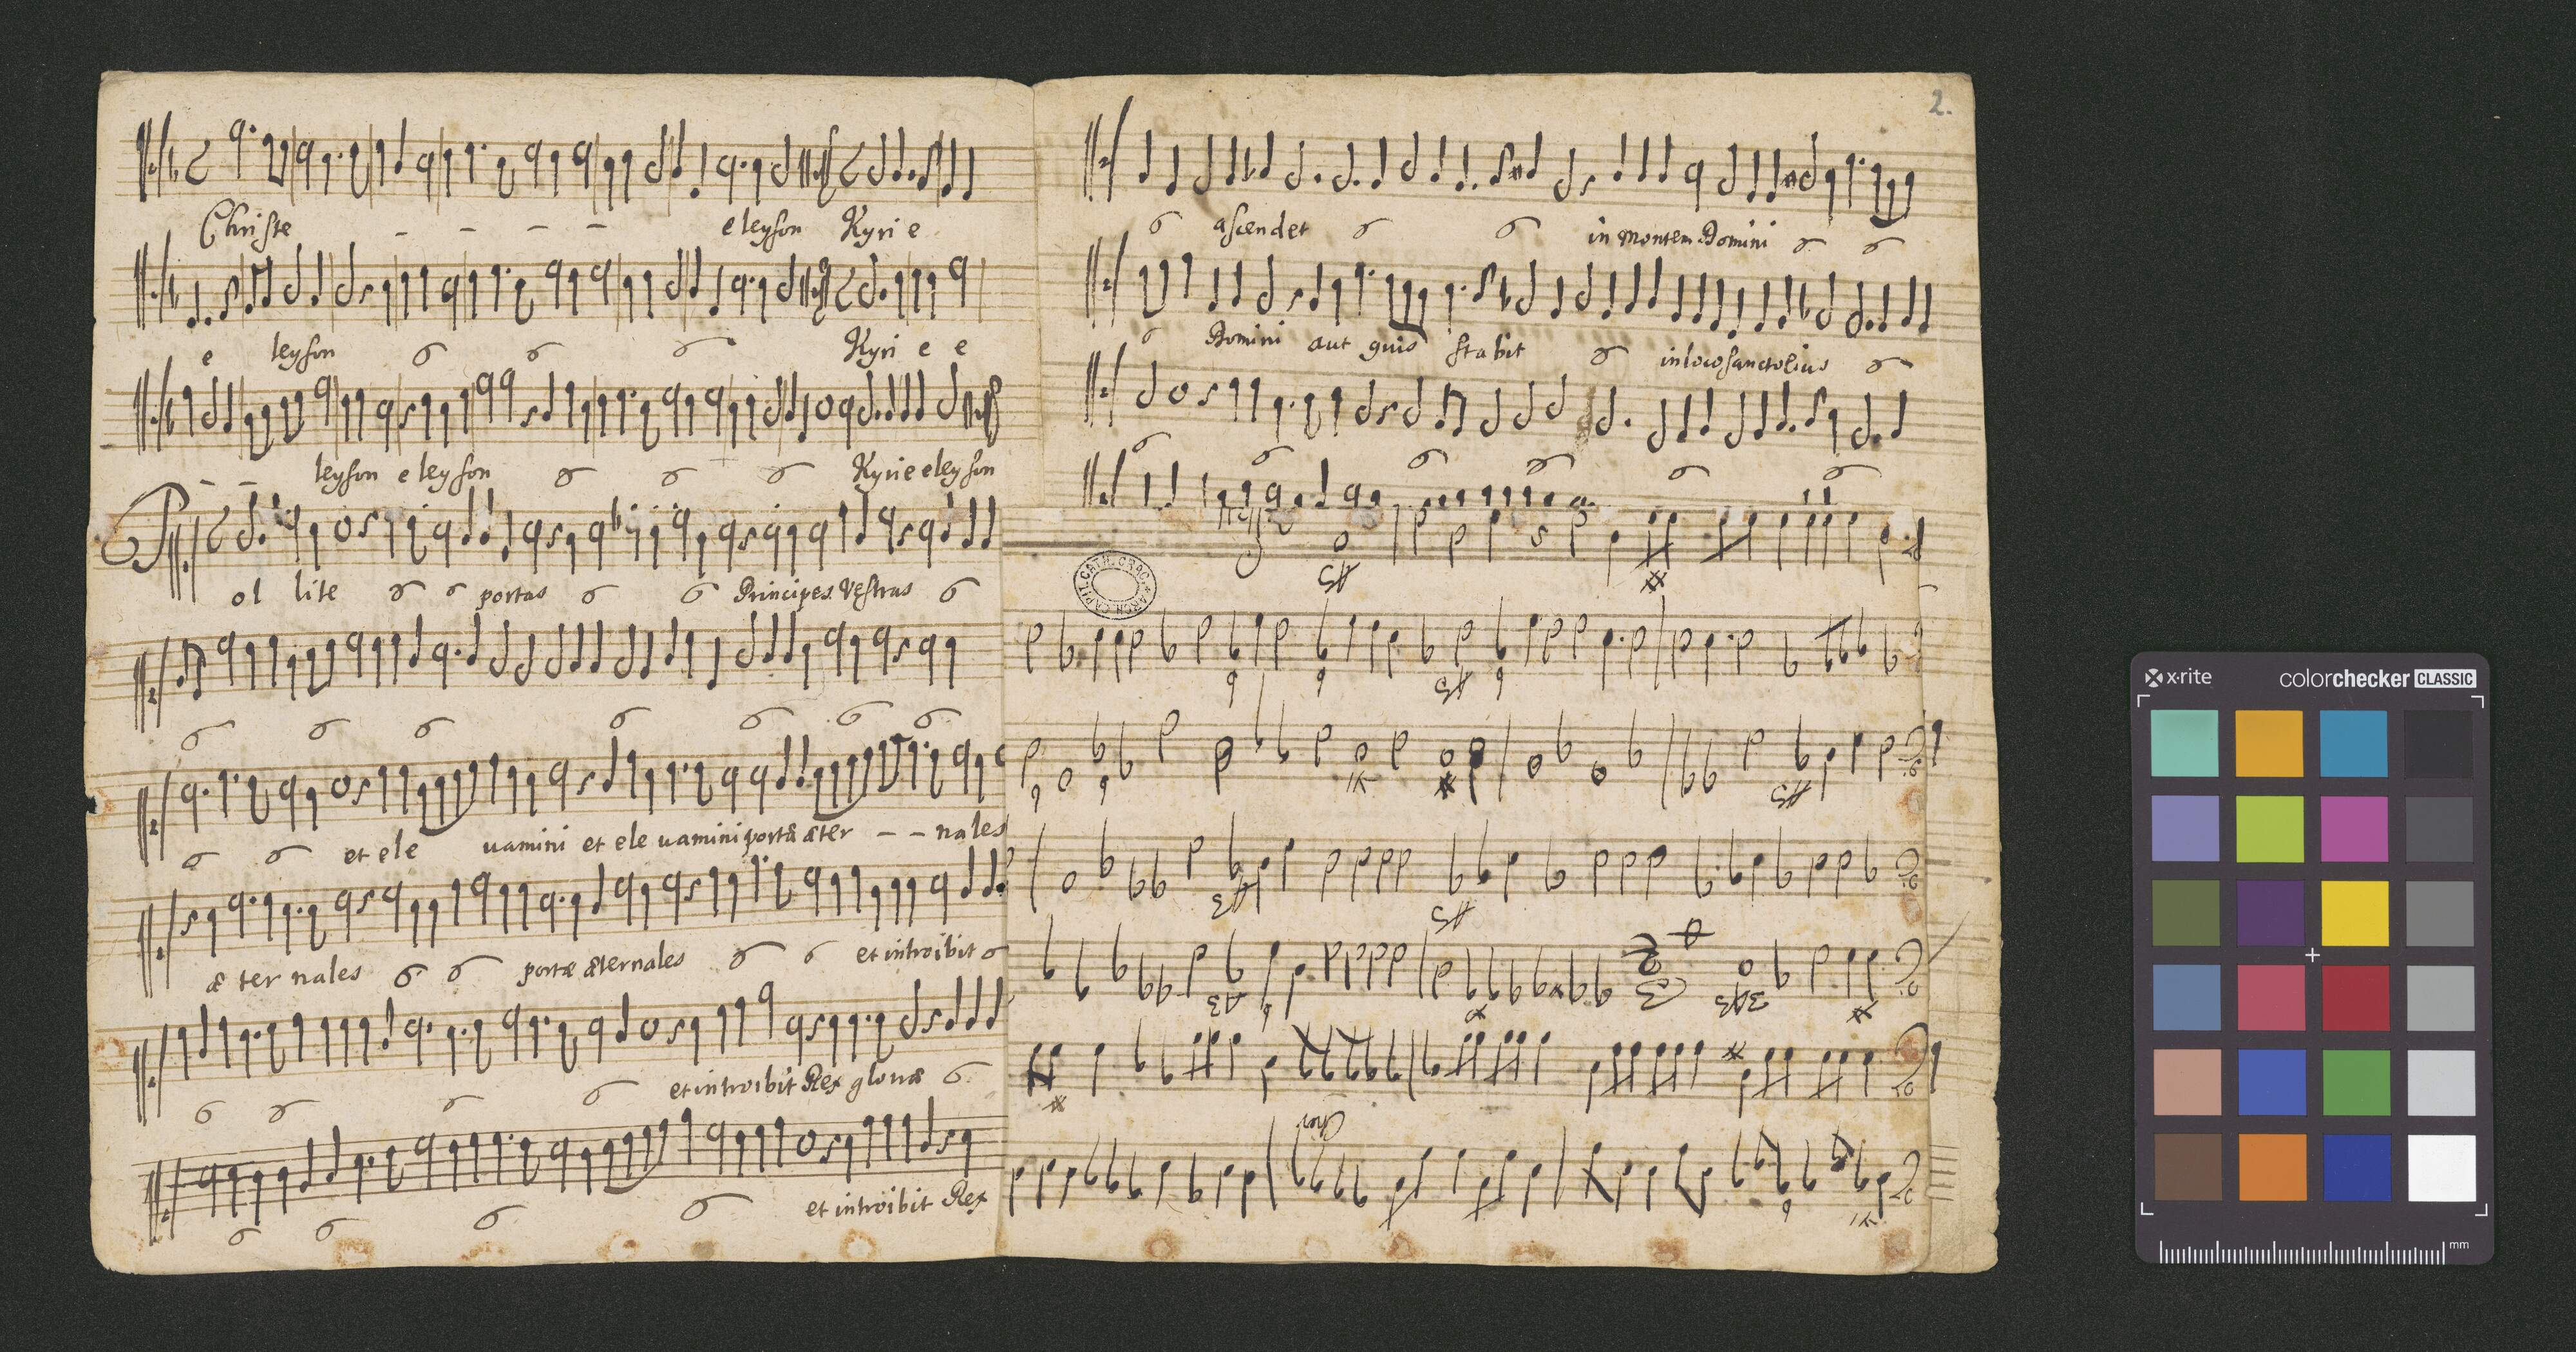 Christe - - - - eleyson Kyri e
e leyson Kyri e e
- - leyson e leyson Kyrie eleyson
Tol lite portas Principes Vestras
et ele uamini et ele uamini portæ æter - - nales
æ ter nales portæ æternales et introibit
et introibit Rex gloriæ
et introibit Rex
2.
ascendet in montem Domini
Domini aut quis stabit in loco sancto eius
ARCH. CAPIT. CATH. CRAC.
x-rite colorchecker CLASSIC
mm